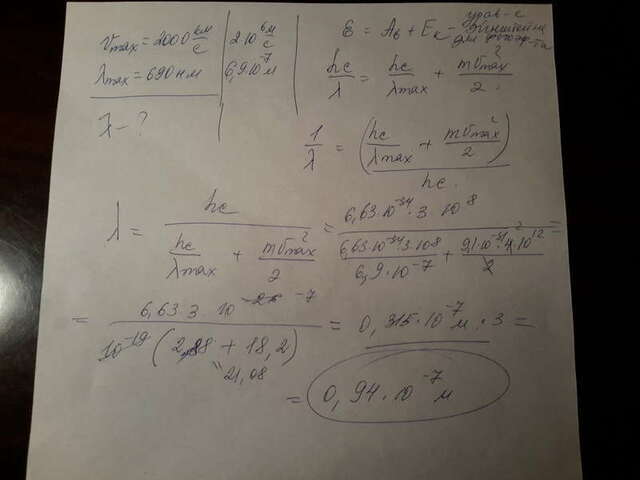 υmax = 2000 км/с | 2·10⁶ м/с
λmax = 690 нм | 6,9·10⁻⁷ м
λ – ?
ℰ = Aв + Eк – урав-е Эйнштейна для фотоэф-та
hc/λ = hc/λmax + mυmax²/2
1/λ = (hc/λmax + mυmax²/2)/hc
λ = hc/(hc/λmax + mυmax²/2) = 6,63·10⁻³⁴·3·10⁸/(6,63·10⁻³⁴·3·10⁸/6,9·10⁻⁷ + 9,1·10⁻³¹·4·10¹²/2) =
= 6,63·3·10⁻⁷/10⁻¹⁹(2,88 + 18,2) = 0,315·10⁻⁷ м · 3 =
21,08
= 0,94·10⁻⁷ м